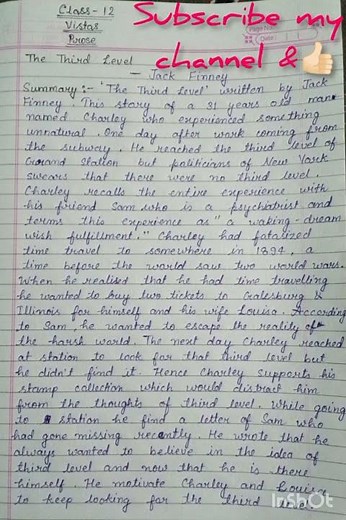 Class - 12
Vistas
Prose
Subscribe my
channel & 👍🏻
The Third Level
- Jack Finney
Summary :- 'The Third Level' written by Jack
Finney. This story of a 31 years old man
named Charley who experienced something
unnatural. One day after work coming from
the subway. He reached the third level of
Grand Station but politicians of New York
swears that there were no third level.
Charley recalls the entire experience with
his friend Sam who is a psychiatrist and
terms this experience as "a waking-dream
wish fulfillment." Charley had
time travel to somewhere in 1894, a
time before the world saw two world wars.
When he realised that he had time travelling
he wanted to buy two tickets to Galesburg
Illinois for himself and his wife Louisa. According
to Sam, he wanted to escape the reality of
the harsh world. The next day Charley reached
at station to look for that third level but
he didn't find it. Hence Charley supports his
stamp collection which would distract him
from the thoughts of third level. While going
to station he find a letter of Sam who
had gone missing recently. He wrote that he
always wanted to believe in the idea of
third level and now that he is there
himself. He motivate Charley and Louisa
to keep looking for the third
InShot